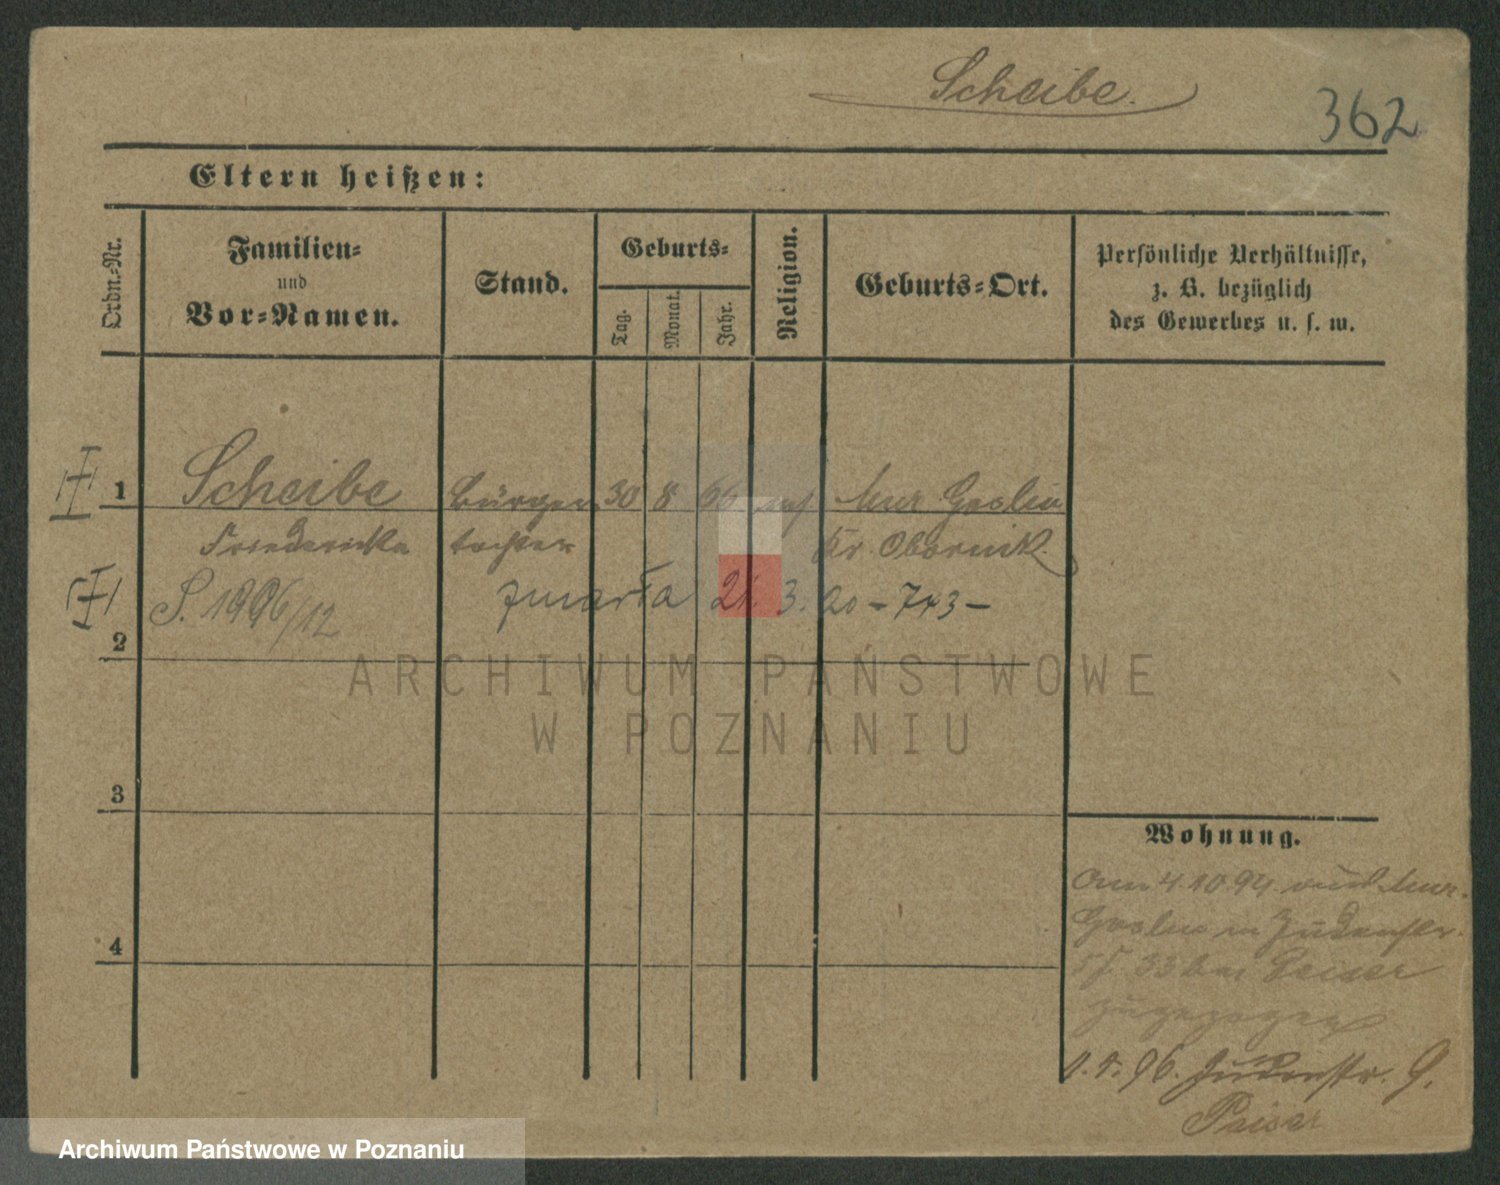 Scheibe.
362
Eltern heißen:
Ordn.-Nr.
Familien-
und
Vor-Namen.
Stand.
Geburts-
Tag.
Monat.
Jahr.
Religion.
Geburts-Ort.
Persönliche Verhältnisse,
z. B. bezüglich
des Gewerbes u. s. w.
1 Scheibe Bürger 30 8 66 Mur. Goslin
Friederike tochter Kr. Obornik
S. 1996/12 zmarła 21. 3. 20 - 743 -
2
3
4
ARCHIWUM PAŃSTWOWE
W POZNANIU
Wohnung.
Am 4.10.94 aus Mur.
Goslin n Judenstr.
33 bei Peiser
zugezogen
1.5.96. Judenstr. 9.
Peiser
Archiwum Państwowe w Poznaniu